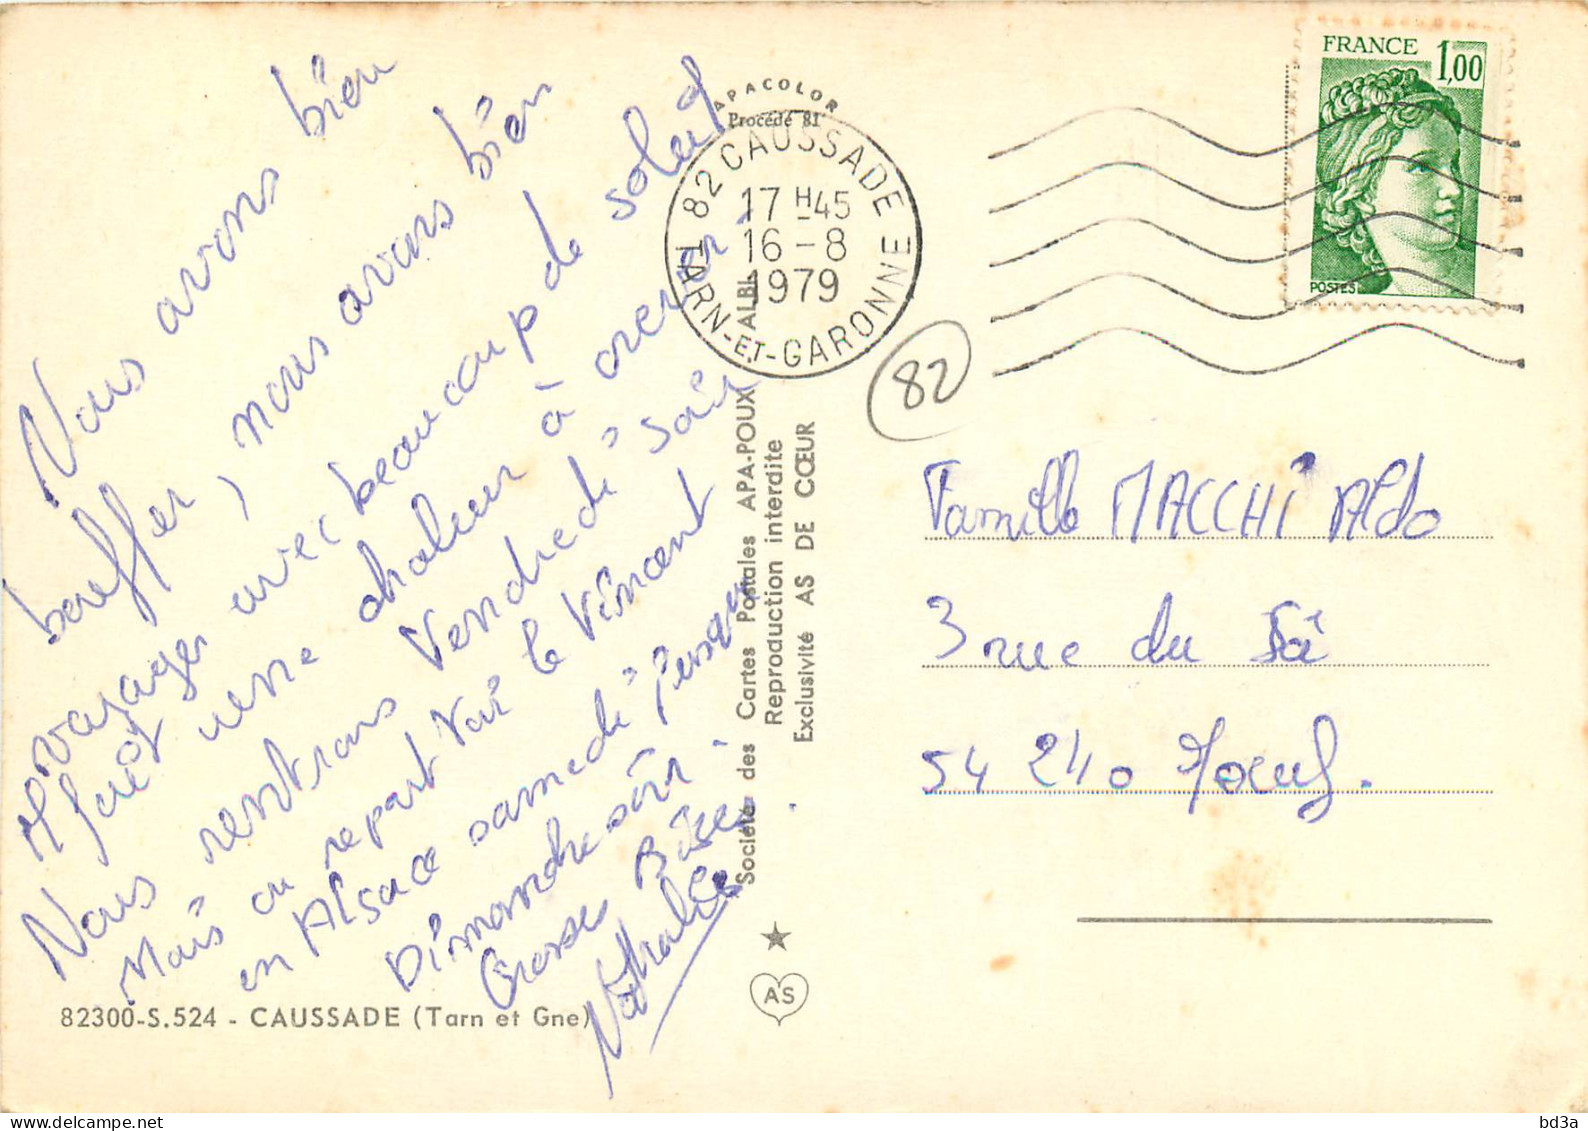 Nous avons bien
bouffer, nous avons bien
voyager avec beaucoup de soleil
il fait une chaleur à crever.
Nous rentrons Vendredi soir
Mais on repart voir le Vincent
en Alsace samedi jusqu'
Dimanche soir.
Grosses Bises.
Nathalie
82300-S.524 - CAUSSADE (Tarn et Gne)
APACOLOR
Procédé 81
Société des Cartes Postales APA-POUX ALBI
Reproduction interdite
Exclusivité AS DE CŒUR
AS
82 CAUSSADE
17 H 45
16 - 8
1979
TARN-ET-GARONNE
FRANCE 1,00
POSTES
82
Famille MACCHI Aldo
3 rue du
54 240 Joeuf.
bd3a